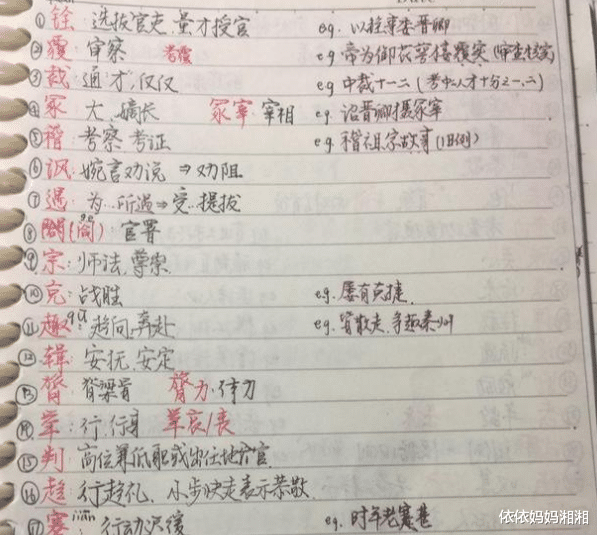 ①铨：选拔官吏、量才授官 eg. 以铨事委晋卿
②覆：审察 考覆 eg 帝为御花萼楼覆实（审查核实）
③裁 通"才"，仅仅 eg 中裁十一二（考中人才十分之一、二）
④冢 大、嫡长 冢宰 宰相 eg. 诏晋卿摄冢宰
⑤稽 考察、考证 eg 稽祖宗故事（旧例）
⑥讽：婉言劝说 ⇒ 劝阻
⑦遇：为…所遇 ⇒ 受…提拔
⑧閤（阁）gé：官署
⑨宗：师法，尊崇
⑩克：战胜 eg. 屡有克捷
⑪趣qū：趋向、奔赴 eg. 皆散走，争趣秦州
⑫辑：安抚，安定
⑬膂 脊梁骨 膂力：体力
⑭ 行，行身
⑮判 高位兼低职或出任地方官
⑯趋：行趋礼，小步快走表示恭敬
⑰蹇jiǎn：行动迟缓 eg. 时年老蹇
依依妈妈湘湘